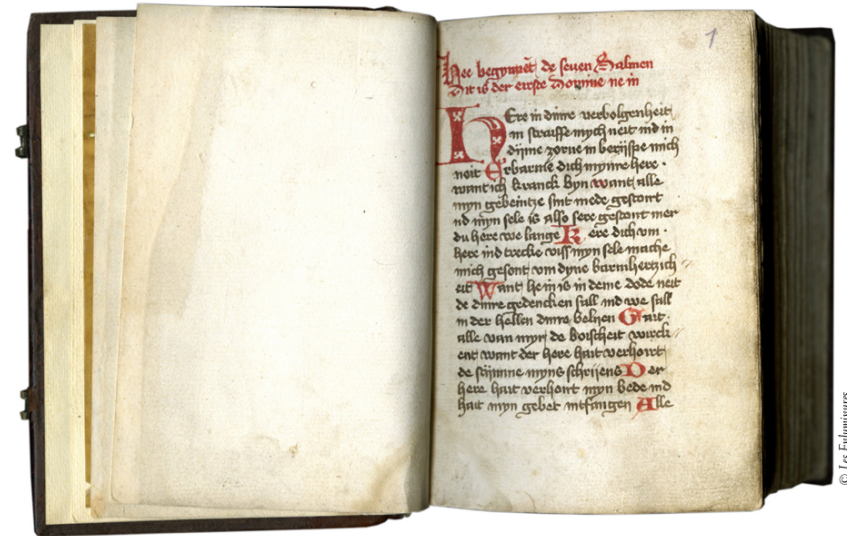 1
Hee begynnẽt de seuen Salmen
Dit is der eirste Domine ne in
HEre in dinre verbolgenheit
in straiffe mych neit ind in
dijme zorne in berijspe mich
neit Erbarme dich mynre here ·
want ich kranck byn want alle
myn gebeintze sint mede gestort
ind myn sele is also sere gestort mer
du here we lange Kere dich vm ·
here ind trecke viss myn sele mache
mich gesont vm dyne barmhertzich
eit Want he in is in deme dode neit
de dinre gedencken sall ind we sall
in der hellen dinre belien Gait ·
alle van myr de boisheit wirck
ent want der here hait verhoirt
de stimme myns schrijens Der
here hait verhoirt myn bede ind
hait myn gebet intfangen Alle
© Les Enluminures